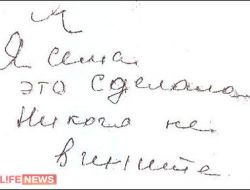 Я
Я сама
это сделала
Никого не
вините
LIFENEWS